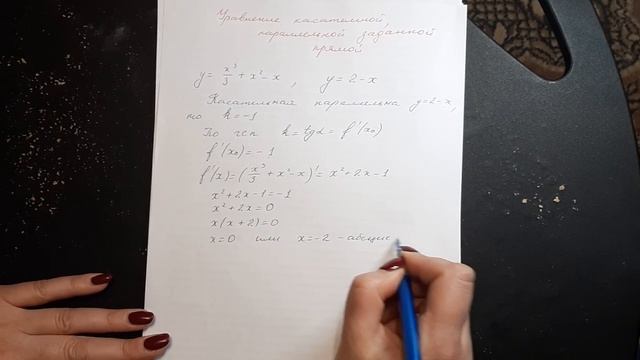 Уравнение касательной,
параллельной заданной
прямой
y = x³/3 + x² - x , y = 2 - x
Касательная параллельна y = 2 - x,
то k = -1
По гсп k = tgα = f'(x₀)
f'(x₀) = -1
f'(x) = (x³/3 + x² - x)' = x² + 2x - 1
x² + 2x - 1 = -1
x² + 2x = 0
x(x + 2) = 0
x = 0 или x = -2 - абсцис